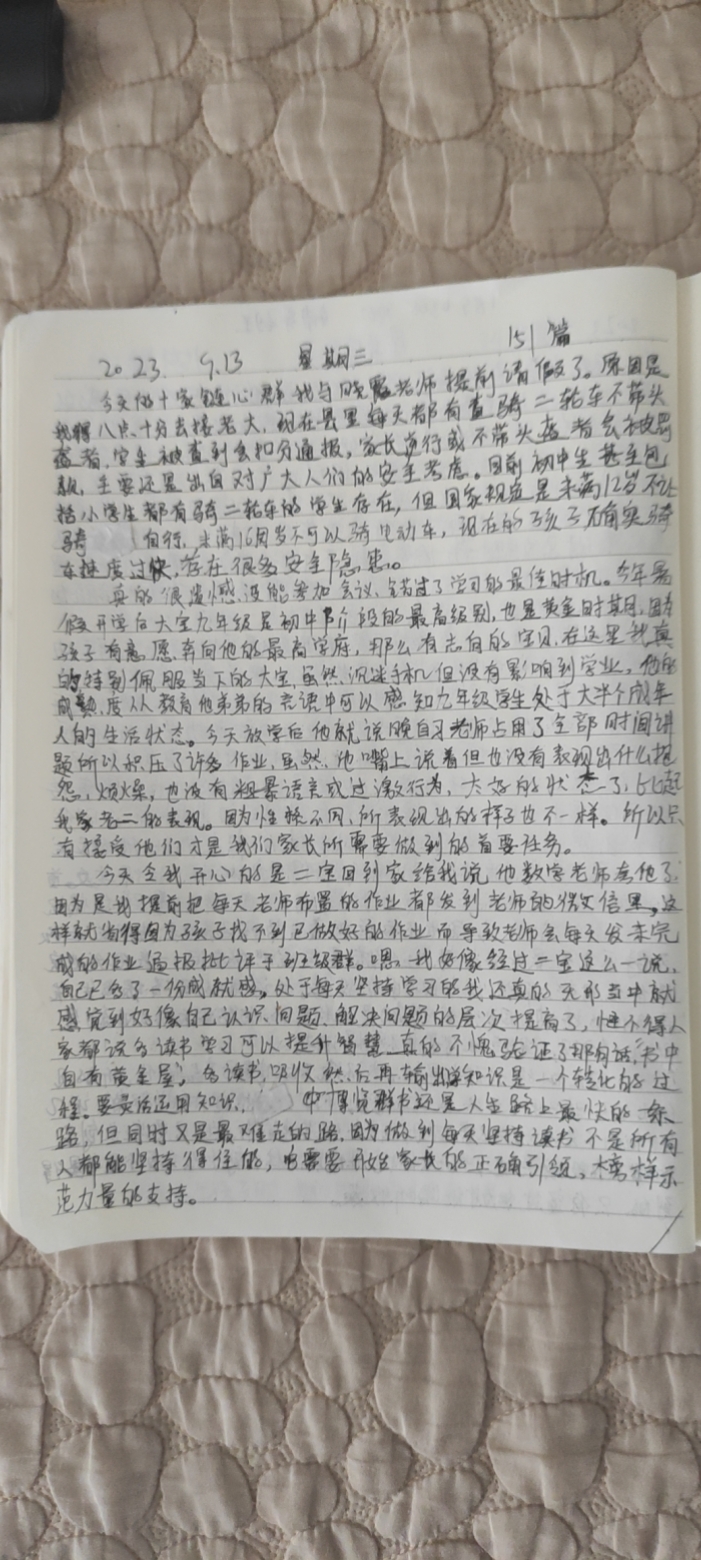 2023. 9.13 星期三 151篇
今天的十家链心群我与晓霞老师提前请假了。原因是
我得八点十分去接老大,现在县里每天都有查骑二轮车不带头
盔者,学生被查到会扣分通报,家长步行或不带头盔者会被罚
款,主要还是出自对广大人们的安全考虑。目前初中生甚至包
括小学生都有骑二轮车的学生存在,但国家规定是未满12岁不让
骑 自行,未满16周岁不可以骑电动车,现在的孩子确实骑
车速度过快,存在很多安全隐患。
真的很遗憾,没能参加会议,错过了学习的最佳时机。今年暑
假开学后大宝九年级是初中阶段的最高级别,也是黄金时期,因为
孩子有意愿奔向他的最高学府,那么有志向的宝贝,在这里我真
的特别佩服当下的大宝,虽然沉迷手机但没有影响到学业,他的
成熟度从教育他弟弟的言语中可以感知九年级学生处于大半个成年
人的生活状态。今天放学后他就说晚自习老师占用了全部时间讲
题所以积压了许多作业,虽然他嘴上说着但也没有表现出什么抱
怨,烦燥,也没有粗暴语言或过激行为,太好的状态了,比起
我家老二的表现。因为性格不同,所表现出的样子也不一样。所以只
有接受他们才是我们家长所需要做到的首要任务。
今天令我开心的是二宝回到家给我说,他数学老师夸他了
因为是我提前把每天老师布置的作业都发到老师的微信里,这
样就省得因为孩子找不到已做好的作业而导致老师会每天发未完
成的作业通报批评于班级群。嗯,我好像经过二宝这么一说,
自己已多了一份成就感。处于每天坚持学习的我还真的无形当中就
感觉到好像自己认识问题、解决问题的层次提高了,怪不得人
家都说多读书学习可以提升智慧,真的不愧验证了那句话,“书中
自有黄金屋”,多读书,吸收然后再输出学知识是一个转化的过
程。要灵活运用知识, 中博览群书还是人生路上最快的一条
路,但同时又是最难走的路,因为做到每天坚持读书不是所有
人都能坚持得住的,也需要开始家长的正确引领,榜样示
范力量的支持。